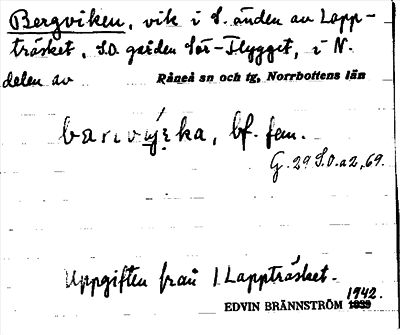 Bergviken, vik i S. änden av Lapp-
träsket, S.O. gården Sör-Flygget, i N.
delen av Råneå sn och tg, Norrbottens län
bf. fem.
G. 29 S.O. a2, 69.
Uppgiften från 1 Lappträsket.
1942.
EDVIN BRÄNNSTRÖM 1939